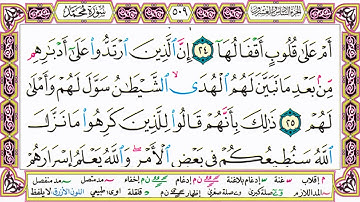 سورة محمد
٥٠٩
أَمْ عَلَىٰ قُلُوبٍ أَقْفَالُهَا ٢٤ إِنَّ الَّذِينَ ارْتَدُّوا عَلَىٰ أَدْبَارِهِم
مِّنۢ بَعْدِ مَا تَبَيَّنَ لَهُمُ الْهُدَى الشَّيْطَانُ سَوَّلَ لَهُمْ وَأَمْلَىٰ
لَهُمْ ٢٥ ذَٰلِكَ بِأَنَّهُمْ قَالُوا لِلَّذِينَ كَرِهُوا مَا نَزَّلَ
اللَّهُ سَنُطِيعُكُمْ فِي بَعْضِ الْأَمْرِ وَاللَّهُ يَعْلَمُ إِسْرَارَهُمْ